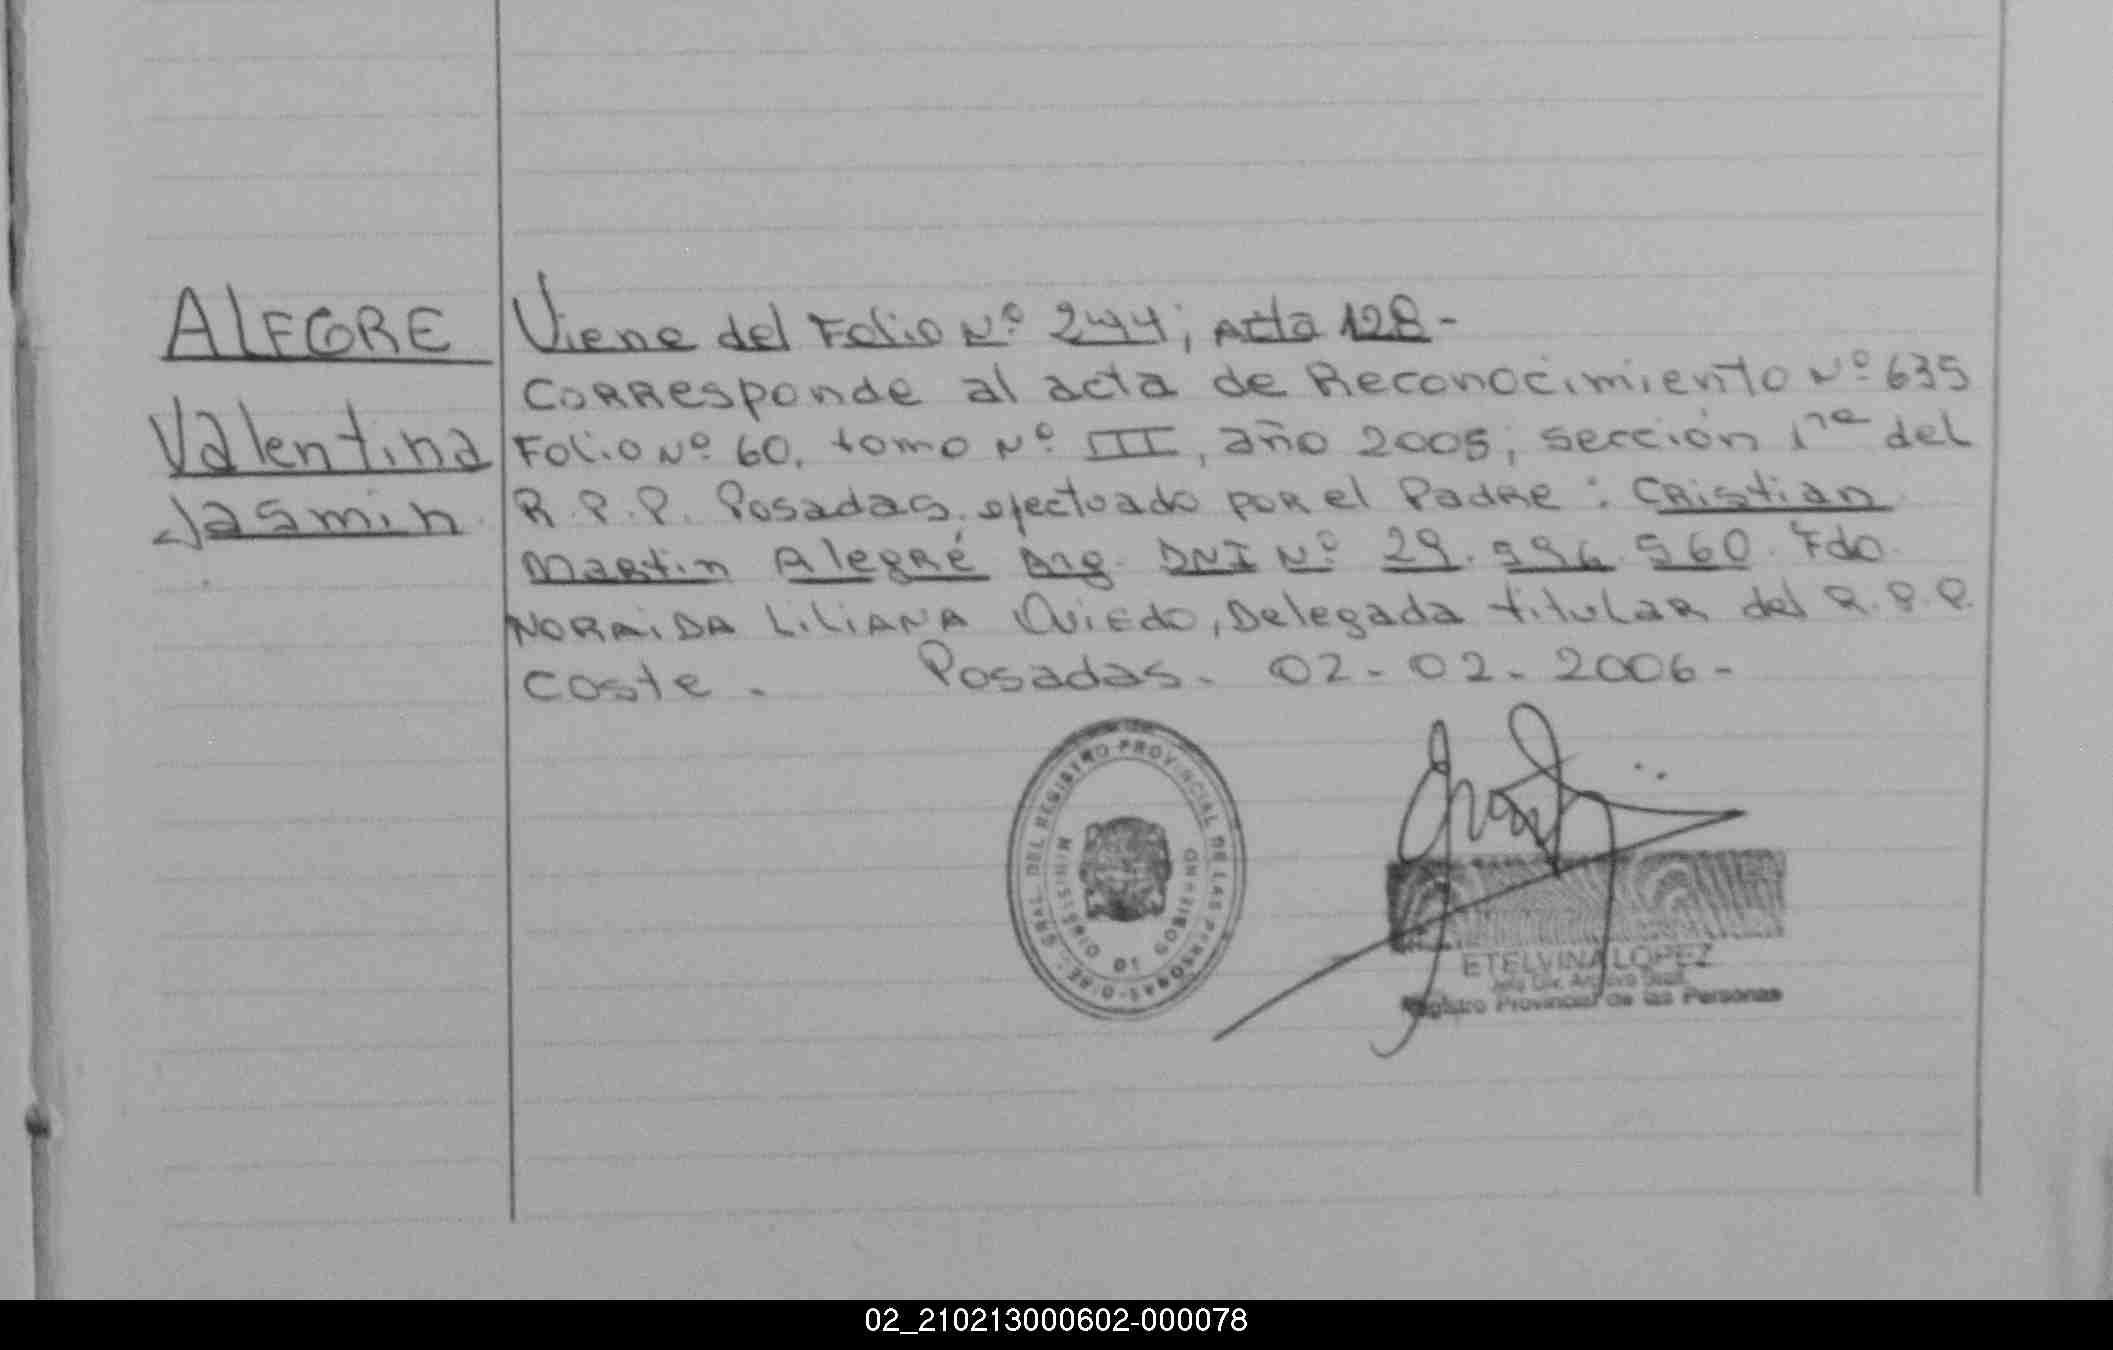 ALEGRE
Valentina
Jasmin.
Viene del Folio Nº 244; Acta 128-
Corresponde al acta de Reconocimiento Nº 635
Folio Nº 60, tomo Nº III, año 2005; sección 1ra del
R.P.P. Posadas, efectuado por el Padre: Cristian
Martin Alegré Arg. DNI Nº 29. 560. Fdo.
NORAIDA LiLiANA Oviedo, Delegada titular del R.P.P.
Coste. Posadas. 02-02-2006-
GRAL. DEL REGISTRO PROVINCIAL DE LAS PERSONAS
MINISTERIO DE GOBIERNO
ETELVINA LOPEZ
Registro Provincial de las Personas
02_210213000602-000078